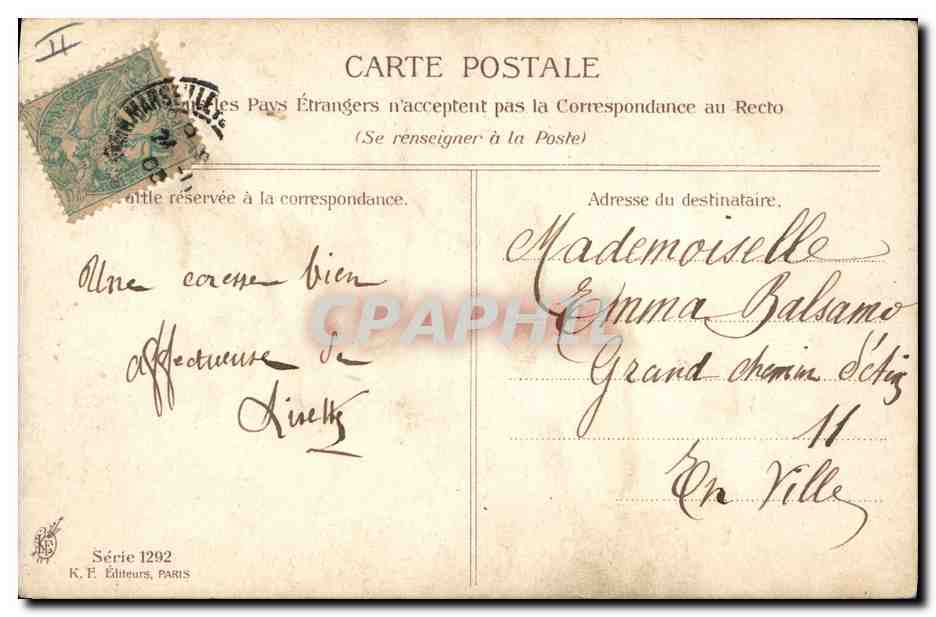 II
CARTE POSTALE
les Pays Étrangers n'acceptent pas la Correspondance au Recto
(Se renseigner à la Poste)
MARSEILLE
réservée à la correspondance.
Adresse du destinataire.
Une caresse bien
affectueuse de
Mademoiselle
Emma Balsamo
Grand chemin
11
En Ville
CPAPHIL
Série 1292
K. F. Éditeurs, PARIS